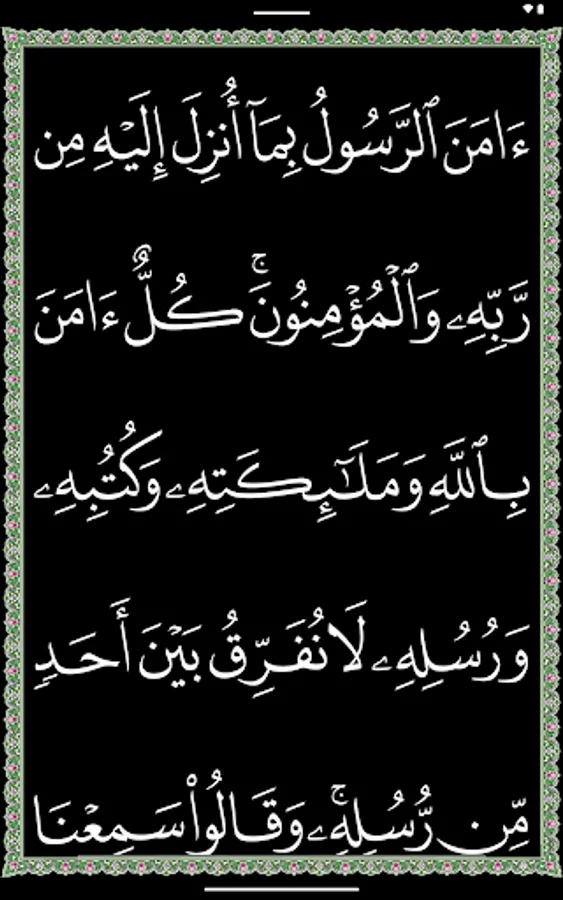 ءَامَنَ ٱلرَّسُولُ بِمَآ أُنزِلَ إِلَيْهِ مِن
رَّبِّهِۦ وَٱلْمُؤْمِنُونَ ۚ كُلٌّ ءَامَنَ
بِٱللَّهِ وَمَلَـٰٓئِكَتِهِۦ وَكُتُبِهِۦ
وَرُسُلِهِۦ لَا نُفَرِّقُ بَيْنَ أَحَدٍ
مِّن رُّسُلِهِۦ ۚ وَقَالُوا۟ سَمِعْنَا